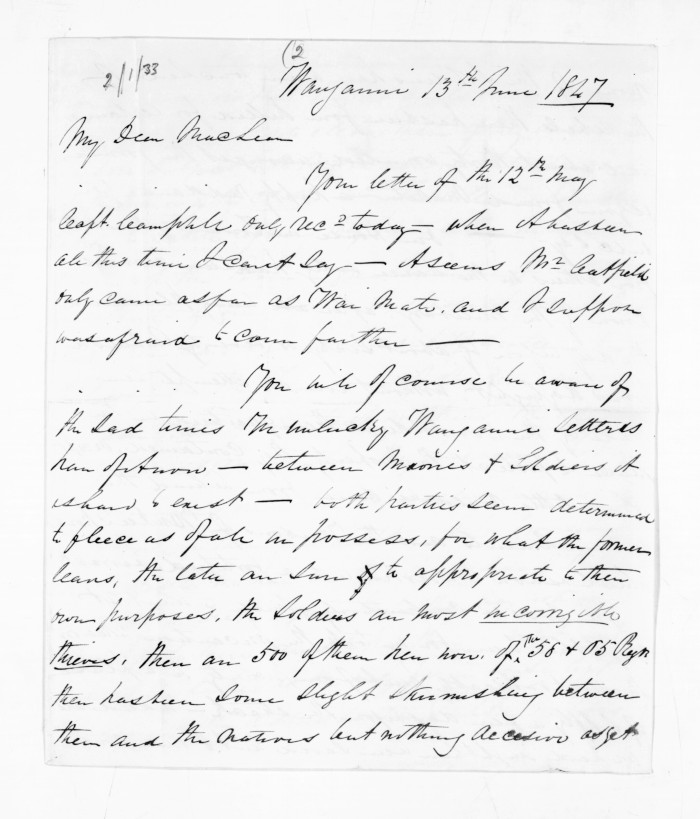 2/1/33
(2
Wanganui 13th June 1847
My Dear MacLean
Your letter of the 12th May
Capt. Campbell only recd today — when it has been
all this time I canot say — it seems Mr Catfield
only came as far as Wai Mate, and I suppose
was afraid to come further —
You will of course be aware of
the sad times the unlucky Wanganui Settlers
have of it now — between Maories & Soldiers it
is hard to exist — both parties seem determined
to fleece us of all we possess, for what the former
leave, the later are sure to appropriate to their
own purposes. the Soldiers are most incorrigible
thieves, there are 500 of them here now. of The 58 & 65 Regts
there has been some slight skirmishing between
them and the natives but nothing decisive as yet